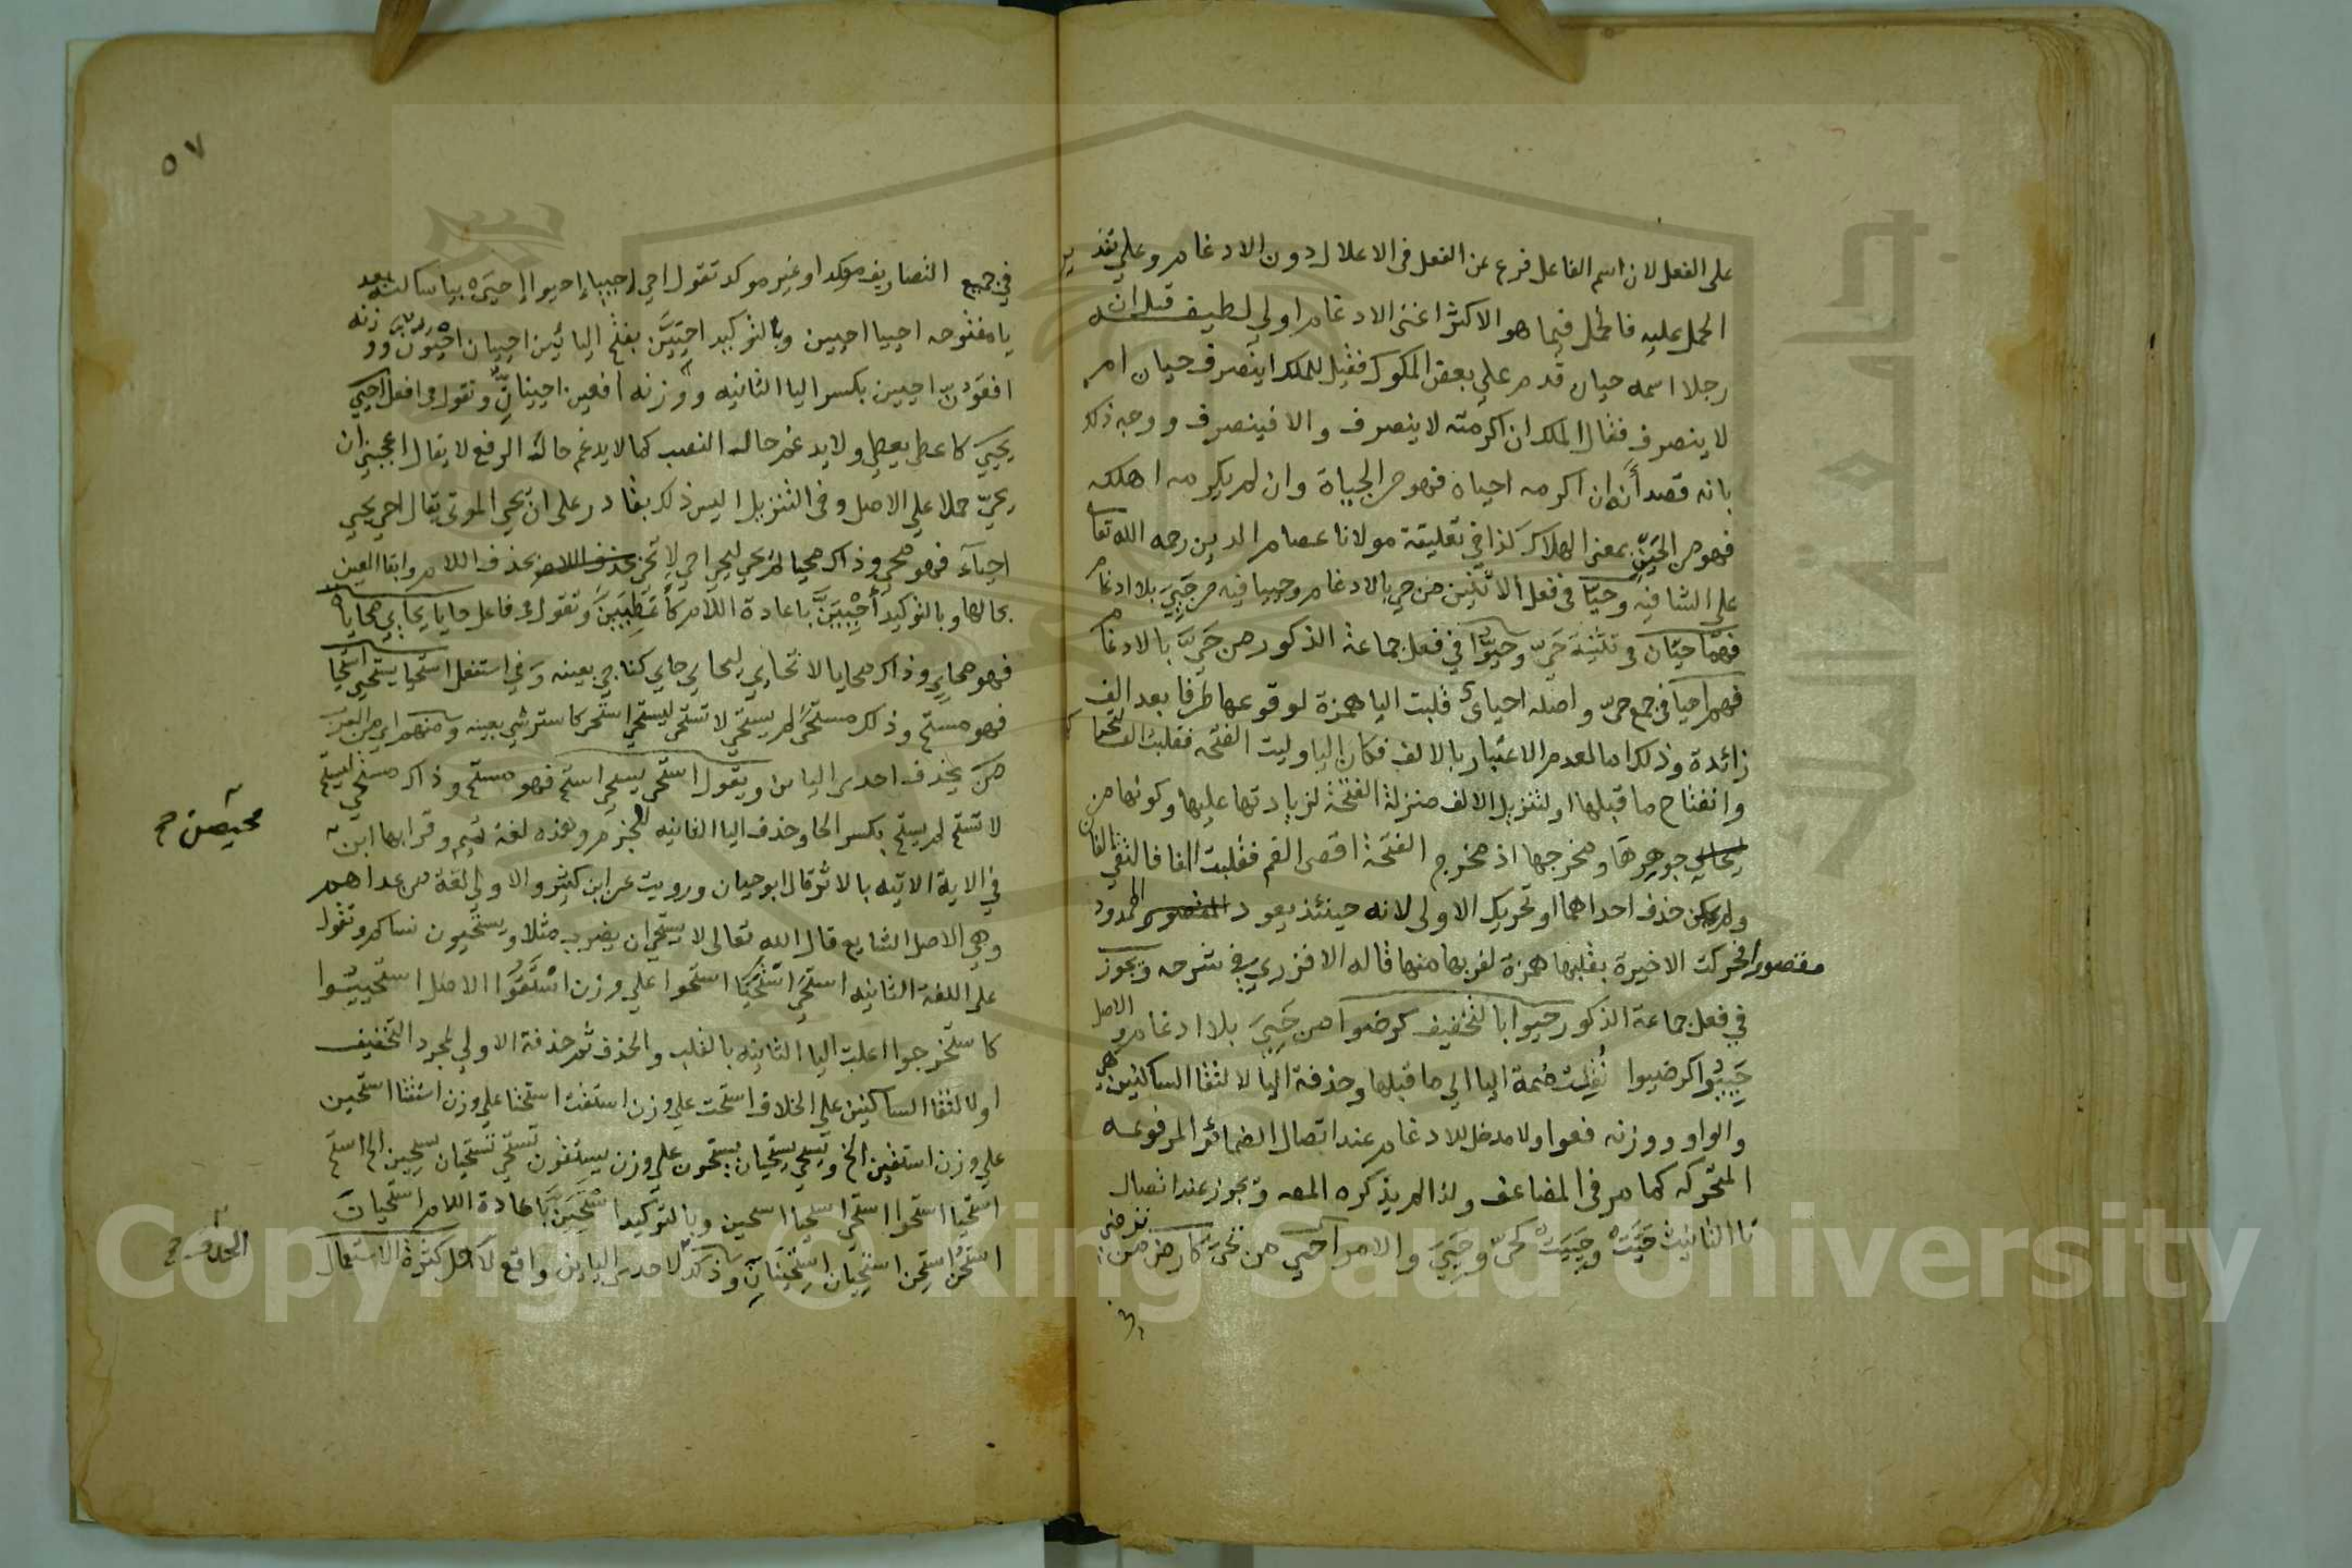 على الفعل لان اسم الفاعل فرع عن الفعل في الاعلال دون الادغام وعلي تقدير
الحمل عليه فالحمل فيما هو الاكثر اغنى الادغام اولي لطيفه قيل ان
رجلا اسمه حيان قدم علي بعض الملوك فقيل للملك اينصرف حيان ام
لا ينصرف فقال الملك ان اكرمته لا ينصرف والا فينصرف ووجه ذلك
بانه قصد أنه ان اكرمه احياه فهو من الحياة وان لم يكرمه اهلكه
فهو من الحين بمعنى الهلاك كذا في تعليقة مولانا عصام الدين رحمه الله تعا
على الشافيه وحيا في فعل الاثنين من حي بالادغام وحييا فيه من حيي بلا ادغام
فهما حيان في تثنية حي وحيوا في فعل جماعة الذكور من حي بالادغام
فهم احيا في جمع حي واصله احياي قلبت اليا همزة لوقوعها طرفا بعد الف
زائدة وذلك اما لعدم الاعتبار بالالف فكان اليا وليت الفتحه فقلبت الفا لتحركها
وانفتاح ما قبلها او لتنزيل الالف منزلة الفتحة لزيادتها عليها وكونها من
جوهرها ومخرجها اذ مخرج الفتحة اقصى الفم فقلبت الفا فالتقي الفان
ولم يمكن حذف احداهما او تحريك الاولى لانه حينئذ يعود الممدود
مقصورا فحركت الاخيرة بقلبها همزة لقربها منها قاله الافزري في شرحه ويجوز
في فعل جماعة الذكور حيوا بالتخفيف كرضوا من حيي بلا ادغام والاصل
حييوا كرضيوا نقلت ضمة اليا الي ما قبلها وحذفة اليا لالتقا الساكنين هي
والواو ووزنه فعوا ولا مدخل للادغام عند اتصال الضمائر المرفوعه
المتحركه كما مر في المضاعف ولذا لم يذكره المص ويجوز عند اتصال
تا التانيث حيت وحييت كحي وحيي والامر احي من تحيى كارض من ترضى
في جميع التصاريف موكدا او غير موكد تقول احي احييا احيوا احيي بيا ساكنة بعد
يا مفتوحه احييا احيين وبالتوكيد احيين بفتح اليائين احييان احيون ووزنه
افعون احيين بكسر اليا الثانيه ووزنه افعين احيينان وتقول في افعل احيي
يحيي كاعطى يعطي ولا يدغم حالة النصب كما لا يدغم حالة الرفع لا يقال اعجبني ان
يحي حملا علي الاصل وفي التنزيل اليس ذلك بقادر على ان يحي الموتى يقال احي يحيي
احياء فهو محي وذاك محيا لم يحي ليحي احي لا تحي بحذف اللام وابقا العين
بحالها وبالتوكيد أحيين باعادة اللام كأعطين وتقول في فاعل حايا يحايي محاياة
فهو محاي وذاك محايا لا تحاي ليحاي حاي كناجي بعينه وفي استفعل استحيا يستحيي استحيا
فهو مستحي وذلك مستحى لم يستحي لا تستحي ليستحي استحي كاسترشي بعينه ومنهم اي من العرب
من يحذف احدى اليائين ويقول استحى يستحي استح فهو مستح وذاك مستحى ليستح
لا تستح لم يستح بكسر الحا وحذف اليا الثانيه للجزم وهذه لغة تميم وقرا بها ابن
محيصن صح
في الاية الاتيه بالاثر قال ابو حيان ورويت عن ابن كثير والاولي لغة من عداهم
وهي الاصل الشايع قال الله تعالى لا يستحي ان يضرب مثلا ويستحيون نساكم وتقول
على اللغة الثانيه استحى استحيا استحوا علي وزن استفوا الاصل استحييوا
كاستخرجوا اعلت اليا الثانيه بالقلب والحذف ثم حذفة الاولي لمجرد التخفيف
اولا لتقا الساكنين على الخلاف استحت علي وزن استفت استحتا علي وزن استفتا استحين
علي وزن استفين الخ ويستحي يستحيان يستحون علي وزن يستفون تستحي تستحيان يستحين الخ استح
استحيا استحوا استحي استحيا استحين وبالتوكيد استحين باعادة اللام استحيان
استحن استحن استحيان استحينان وذلك الحذف صح لاحدى اليائين واقع لاجل كثرة الاستعمال
٥٧